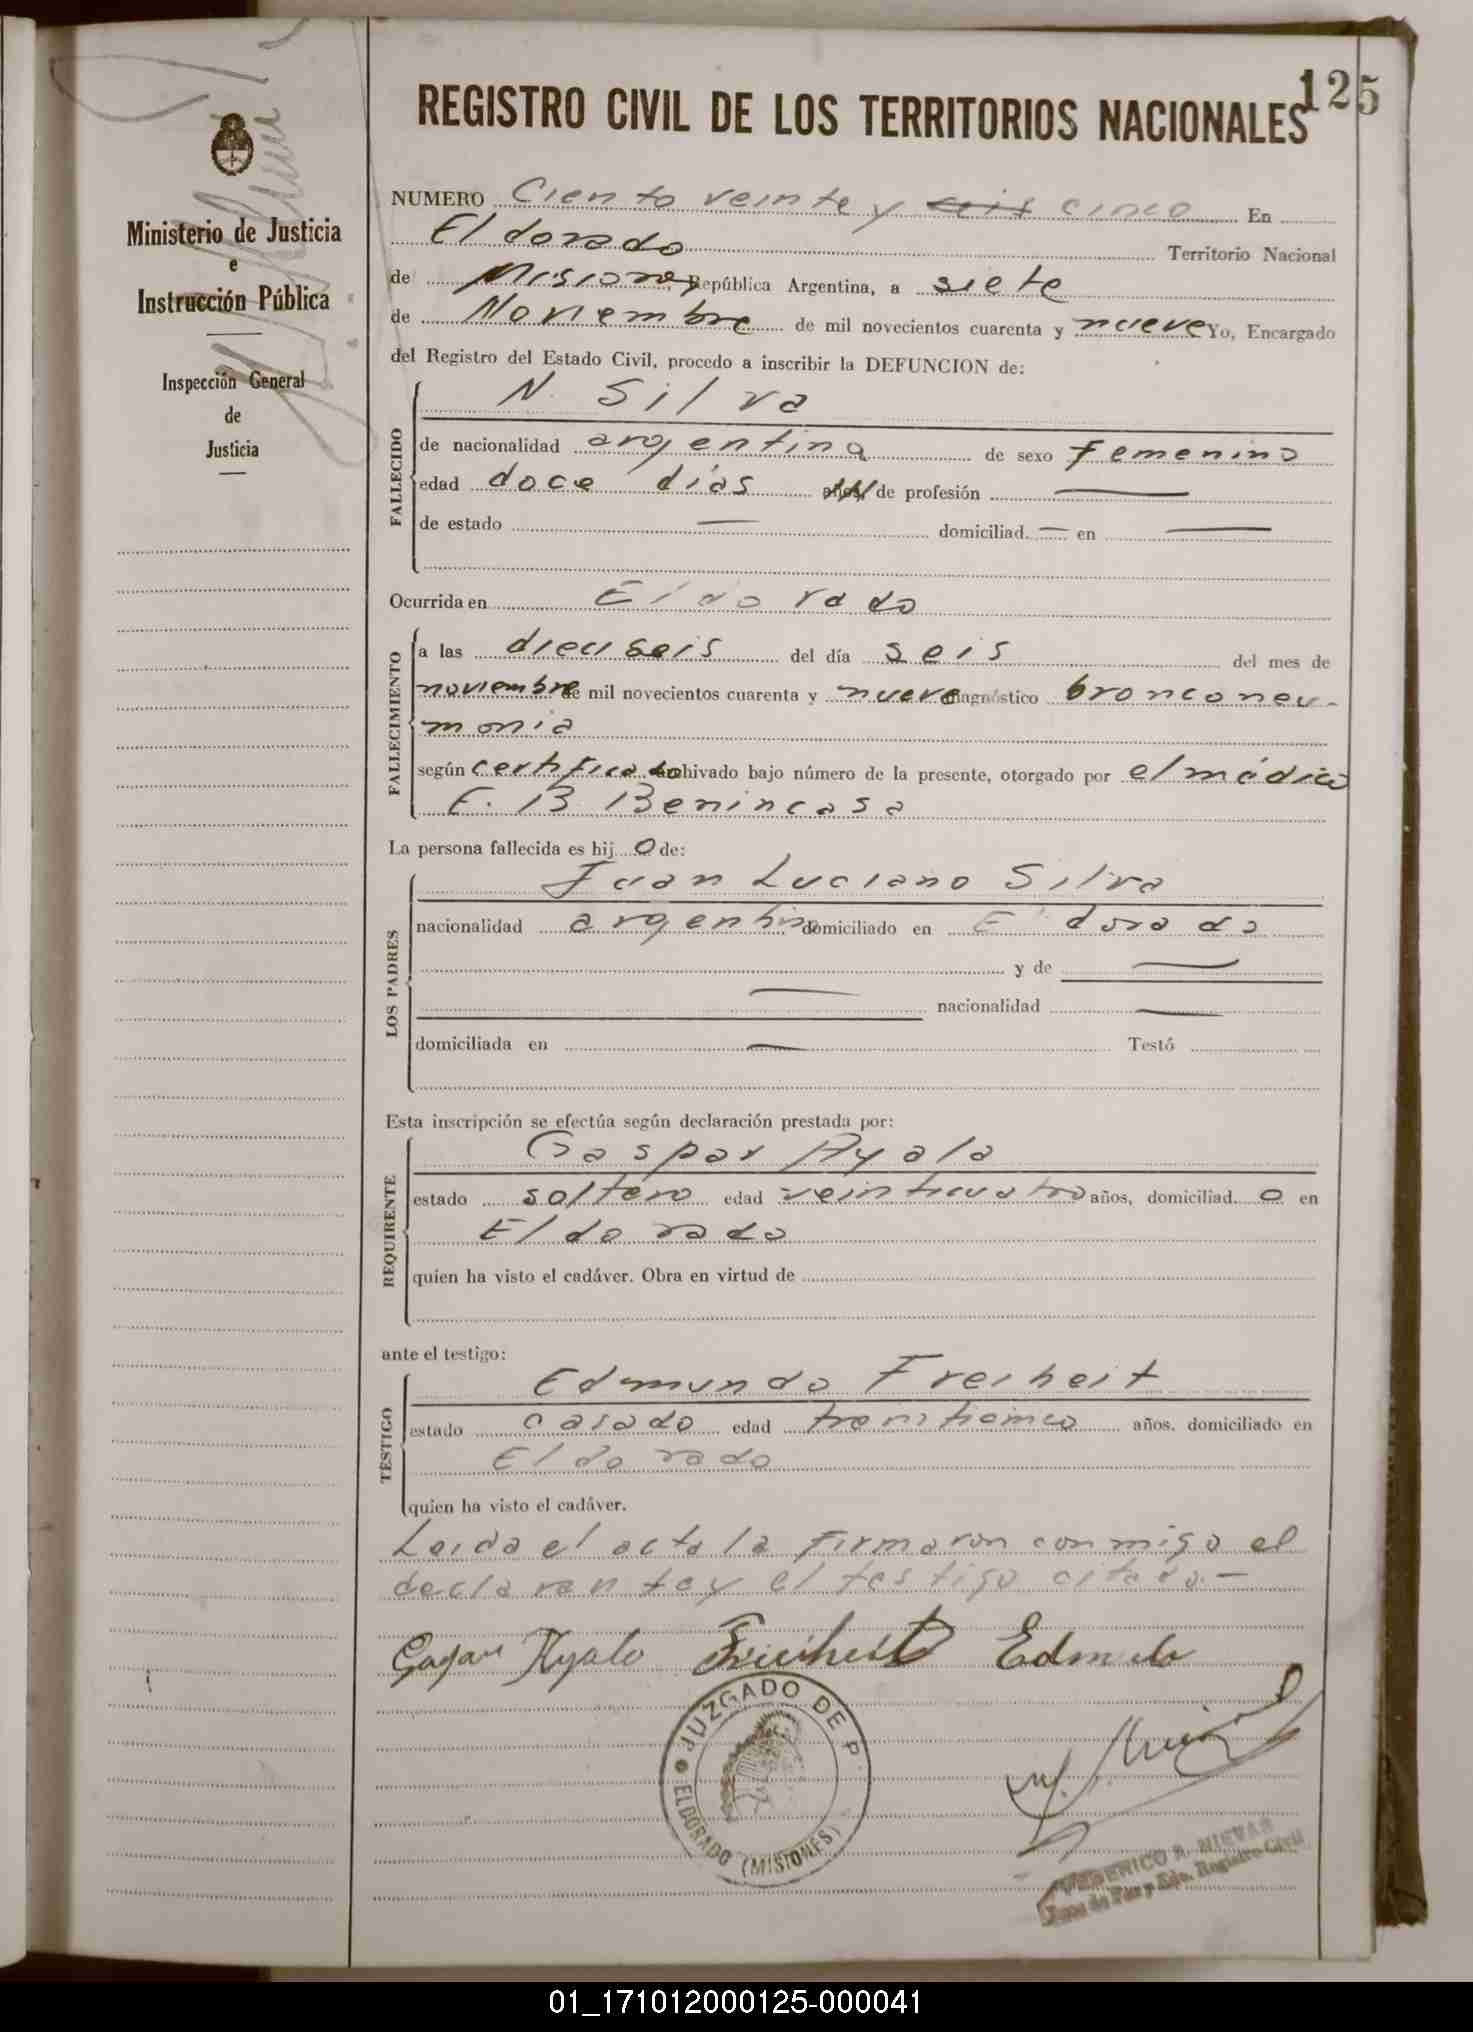 125
REGISTRO CIVIL DE LOS TERRITORIOS NACIONALES
Ministerio de Justicia
e
Instrucción Pública
Inspección General
de
Justicia
NUMERO Ciento veinte y seis cinco En
Eldorado Territorio Nacional
de Misiones, República Argentina, a siete
de Noviembre de mil novecientos cuarenta y nueve Yo, Encargado
del Registro del Estado Civil, procedo a inscribir la DEFUNCION de:
FALLECIDO
N. Silva
de nacionalidad argentina de sexo Femenino
edad doce días años de profesión —
de estado — domiciliad. — en —
Ocurrida en Eldorado
FALLECIMIENTO
a las dieciseis del día seis del mes de
noviembre de mil novecientos cuarenta y nueve diagnóstico bronconeu-
monia
según certificado archivado bajo número de la presente, otorgado por el médico
E. B. Benincasa
La persona fallecida es hij o de:
LOS PADRES
Juan Luciano Silva
nacionalidad argentino domiciliado en Eldorado
y de —
— nacionalidad —
domiciliada en — Testó
Esta inscripción se efectúa según declaración prestada por:
REQUIRENTE
Gaspar Ayala
estado soltero edad veinticuatro años, domiciliad. o en
Eldorado
quien ha visto el cadáver. Obra en virtud de
ante el testigo:
TESTIGO
Edmundo Freiheit
estado casado edad treinticinco años, domiciliado en
Eldorado
quien ha visto el cadáver.
Leida el acta la firmaron conmigo el
declarante y el testigo citado.—
Gaspar Ayala Freiheit Edmundo
JUZGADO DE P.
ELDORADO (MISIONES)
FEDERICO R. NIEVAS
Juez de Paz y Edo. Registro Civil
01_171012000125-000041